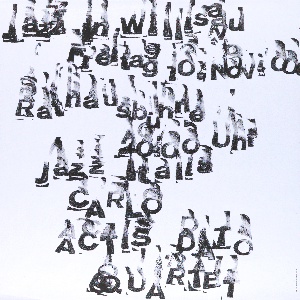 Jazz in willisau
Freitag 10. Nov.
Rathausbühne
20.00 Uhr
Jazz Italia
CARLO
ACTIS DATO
QUARTET